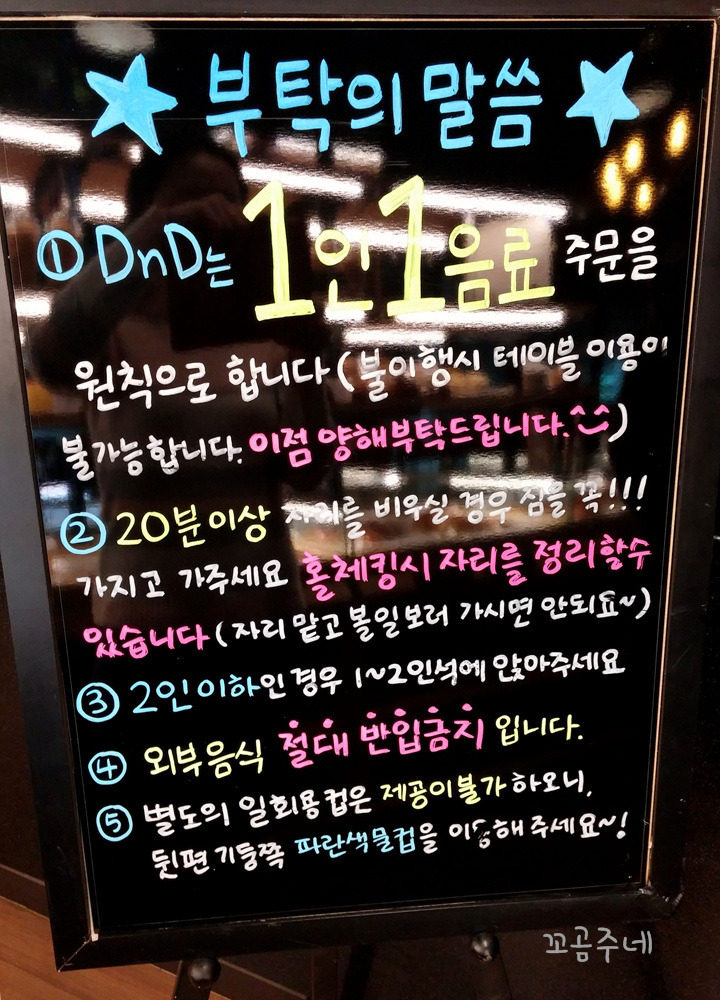 ★ 부탁의 말씀 ★
① DnD는 1인 1음료 주문을
원칙으로 합니다 (불이행시 테이블 이용이
불가능합니다. 이점 양해부탁드립니다.^^)
② 20분이상 자리를 비우실 경우 짐을 꼭!!!
가지고 가주세요 홀체킹시 자리를 정리할수
있습니다 (자리 맡고 볼일보러 가시면 안되요~)
③ 2인이하인 경우 1~2인석에 앉아주세요
④ 외부음식 절대 반입금지 입니다.
⑤ 별도의 일회용컵은 제공이불가하오니,
뒷편 기둥쪽 파란색물컵을 이용해주세요~!
꼬곰주네